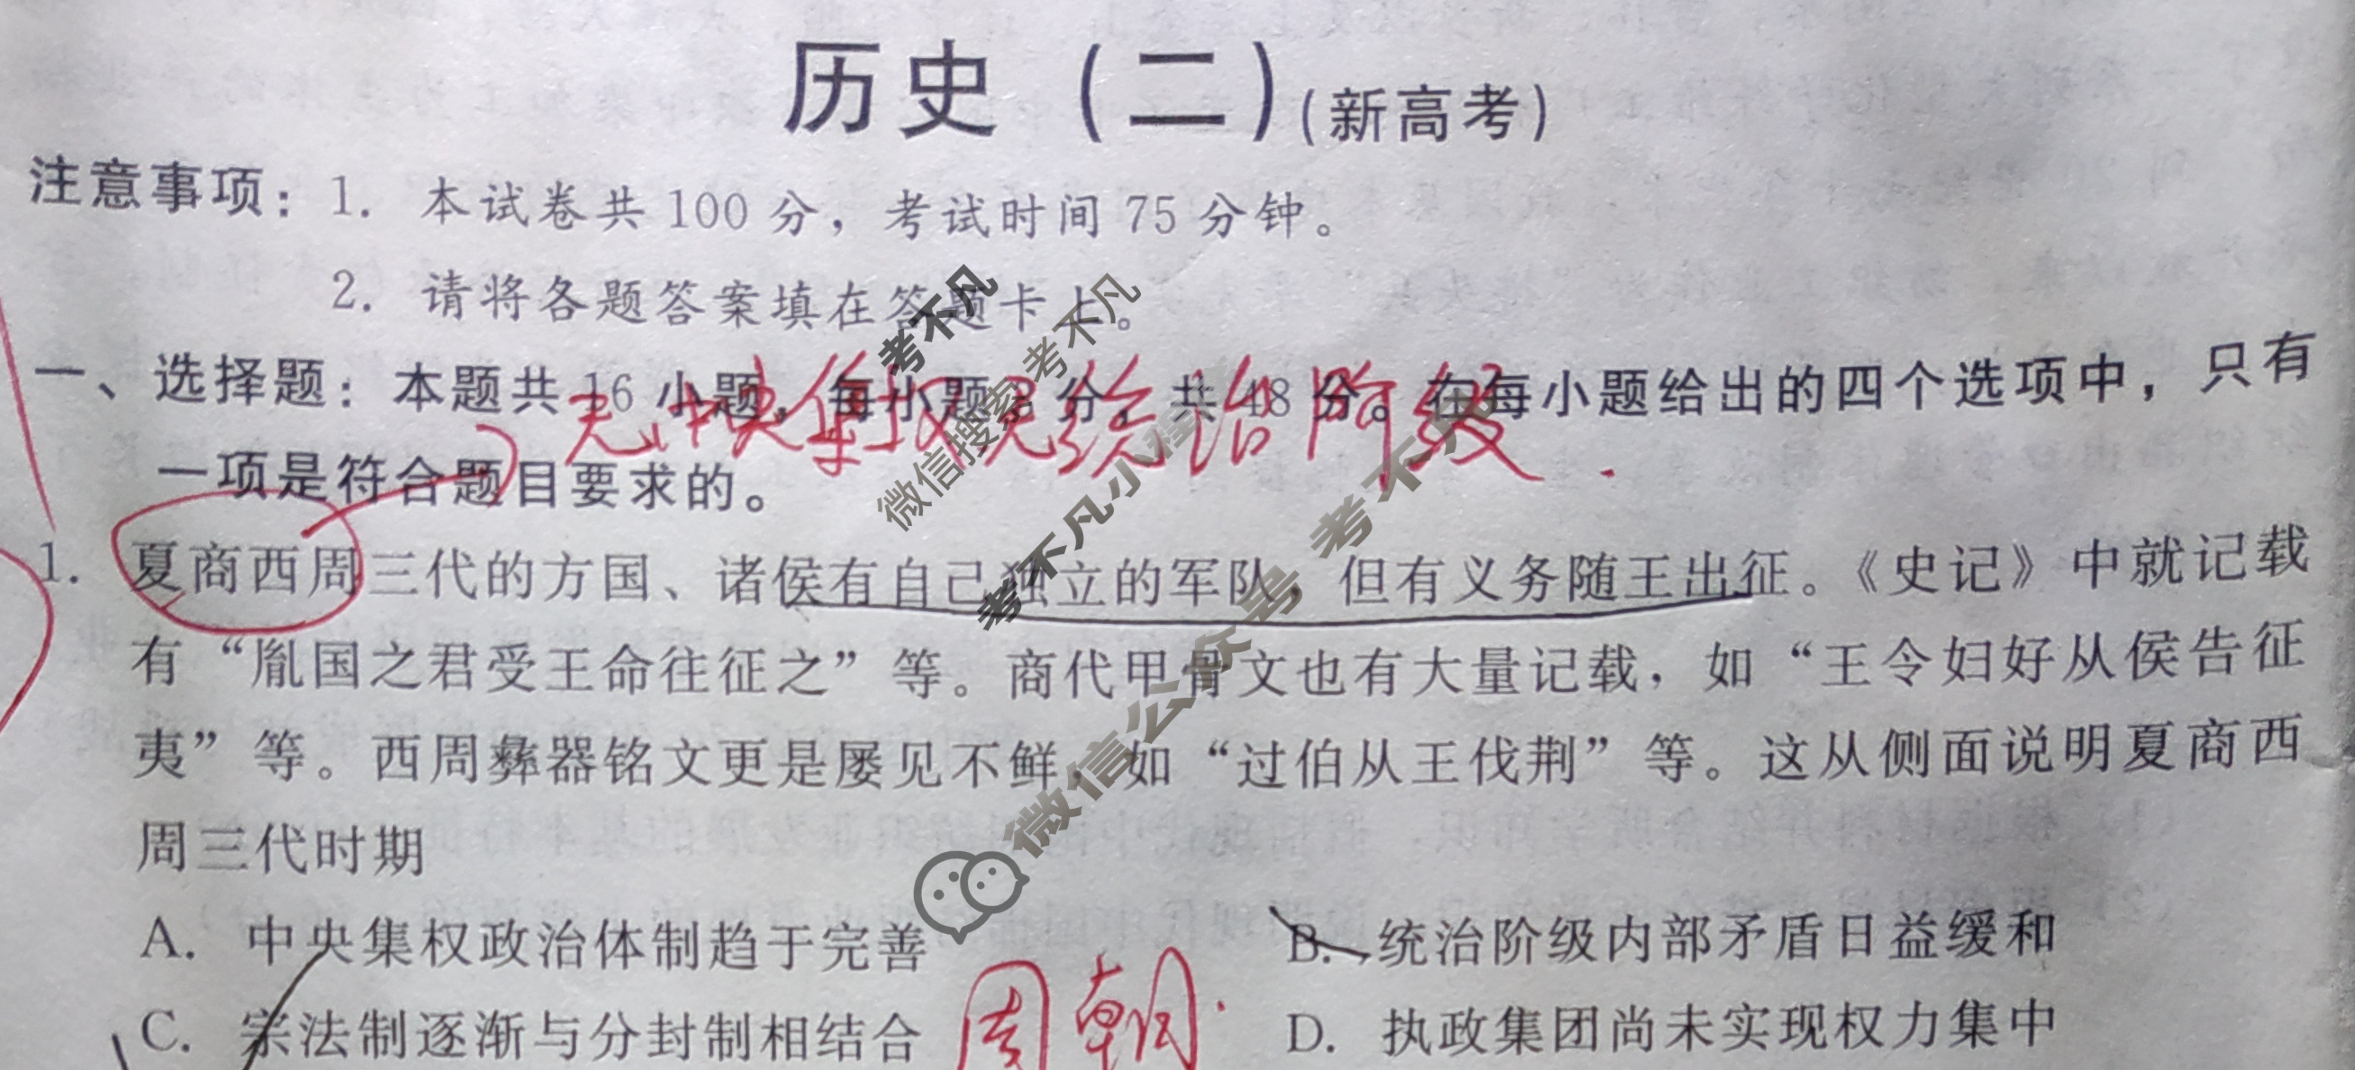 历史（二）(新高考)
注意事项：1. 本试卷共 100 分，考试时间 75 分钟。
2. 请将各题答案填在答题卡上。
一、选择题：本题共 16 小题，每小题 3 分，共 48 分。在每小题给出的四个选项中，只有
无中央集权 统治阶级.
一项是符合题目要求的。
1. 夏商西周三代的方国、诸侯有自己独立的军队，但有义务随王出征。《史记》中就记载
有“胤国之君受王命往征之”等。商代甲骨文也有大量记载，如“王令妇好从侯告征
夷”等。西周彝器铭文更是屡见不鲜，如“过伯从王伐荆”等。这从侧面说明夏商西
周三代时期
A. 中央集权政治体制趋于完善
B. 统治阶级内部矛盾日益缓和
C. 宗法制逐渐与分封制相结合
周朝.
D. 执政集团尚未实现权力集中
考不凡
微信搜索 考不凡
考不凡小程序
微信公众号 考不凡